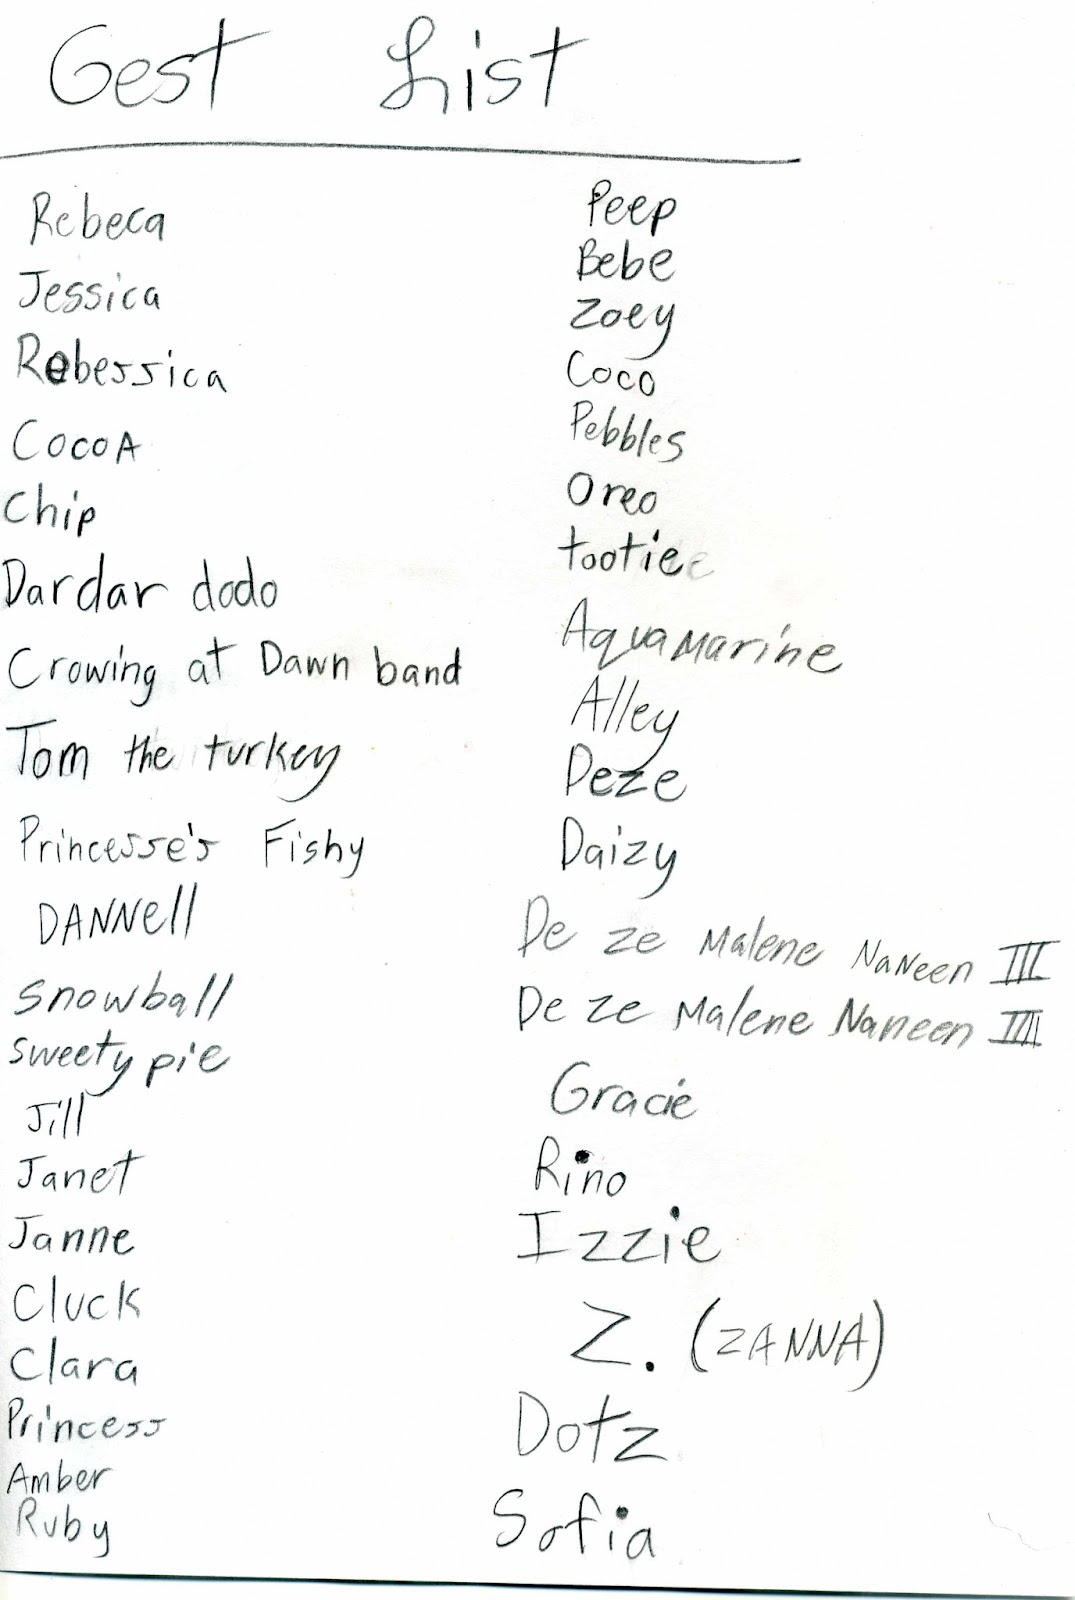 Gest List
Rebeca
Jessica
Rebessica
CocoA
Chip
Dardar dodo
Crowing at Dawn band
Tom the turkey
Princesse's Fishy
DANNell
Snowball
sweety pie
Jill
Janet
Janne
Cluck
Clara
Princess
Amber
Ruby
Peep
Bebe
Zoey
Coco
Pebbles
Oreo
tootie
AquaMarine
Alley
Deze
Daizy
De ze Malene NaNeen III
De ze Malene Naneen IIII
Gracie
Rino
Izzie
Z. (ZANNA)
Dotz
Sofia